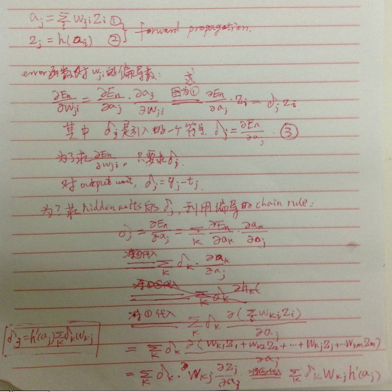 aⱼ = Σᵢ wⱼᵢ zᵢ ①
zⱼ = h(aⱼ) ② } forward propagation.
error函数对 wⱼᵢ 的偏导数:
∂Eₙ/∂wⱼᵢ = ∂Eₙ/∂aⱼ · ∂aⱼ/∂wⱼᵢ = ∂Eₙ/∂aⱼ · zᵢ = δⱼ zᵢ
其中 δⱼ 是引入的一个符号 δⱼ = ∂Eₙ/∂aⱼ. ③
为了求 ∂Eₙ/∂wⱼᵢ, 只要求 δⱼ.
对 output unit, δⱼ = yⱼ - tⱼ
为了求 hidden units 的 δⱼ, 利用偏导的 chain rule:
δⱼ = ∂Eₙ/∂aⱼ = Σₖ ∂Eₙ/∂aₖ · ∂aₖ/∂aⱼ
将③代入 Σₖ δₖ · ∂aₖ/∂aⱼ
将①代入 Σₖ δₖ ∂(Σᵢ wₖᵢ zᵢ)/∂aⱼ
δⱼ = h'(aⱼ) Σₖ δₖ wₖⱼ
= Σₖ δₖ ∂(wₖ₁z₁ + wₖ₂z₂ + … + wₖⱼzⱼ + … wₖₘzₘ)/∂aⱼ
= Σₖ δₖ · wₖⱼ ∂zⱼ/∂aⱼ Σₖ δₖ wₖⱼ h'(aⱼ)